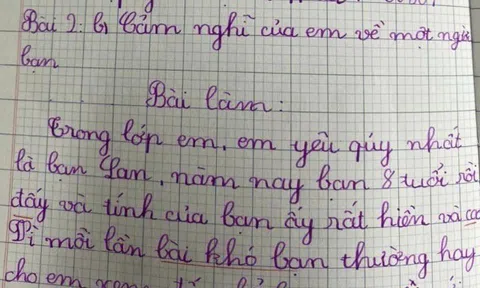 Bài 2: Cảm nghĩ của em về một người
bạn
Bài làm:
Trong lớp em, em yêu quý nhất
là bạn Lan, năm nay bạn 8 tuổi rồi
đấy và tính của bạn ấy rất hiền và
Vì mỗi lần bài khó bạn thường hay
cho em